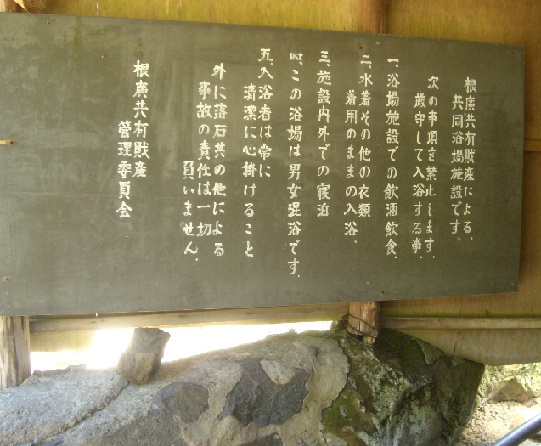 根廣共有財産による、
共同浴場施設です。
次の事項を禁止します。
厳守して入浴する事。
一、浴場施設での飲酒飲食、
二、水着その他の衣類
着用のままの入浴。
三、施設内外での寝泊
四、この浴場は男女混浴です。
五、入浴者は常に
清潔に心掛けること
外に落石其の他による
事故の責任は一切
負いません。
根廣共有財産
管理委員会